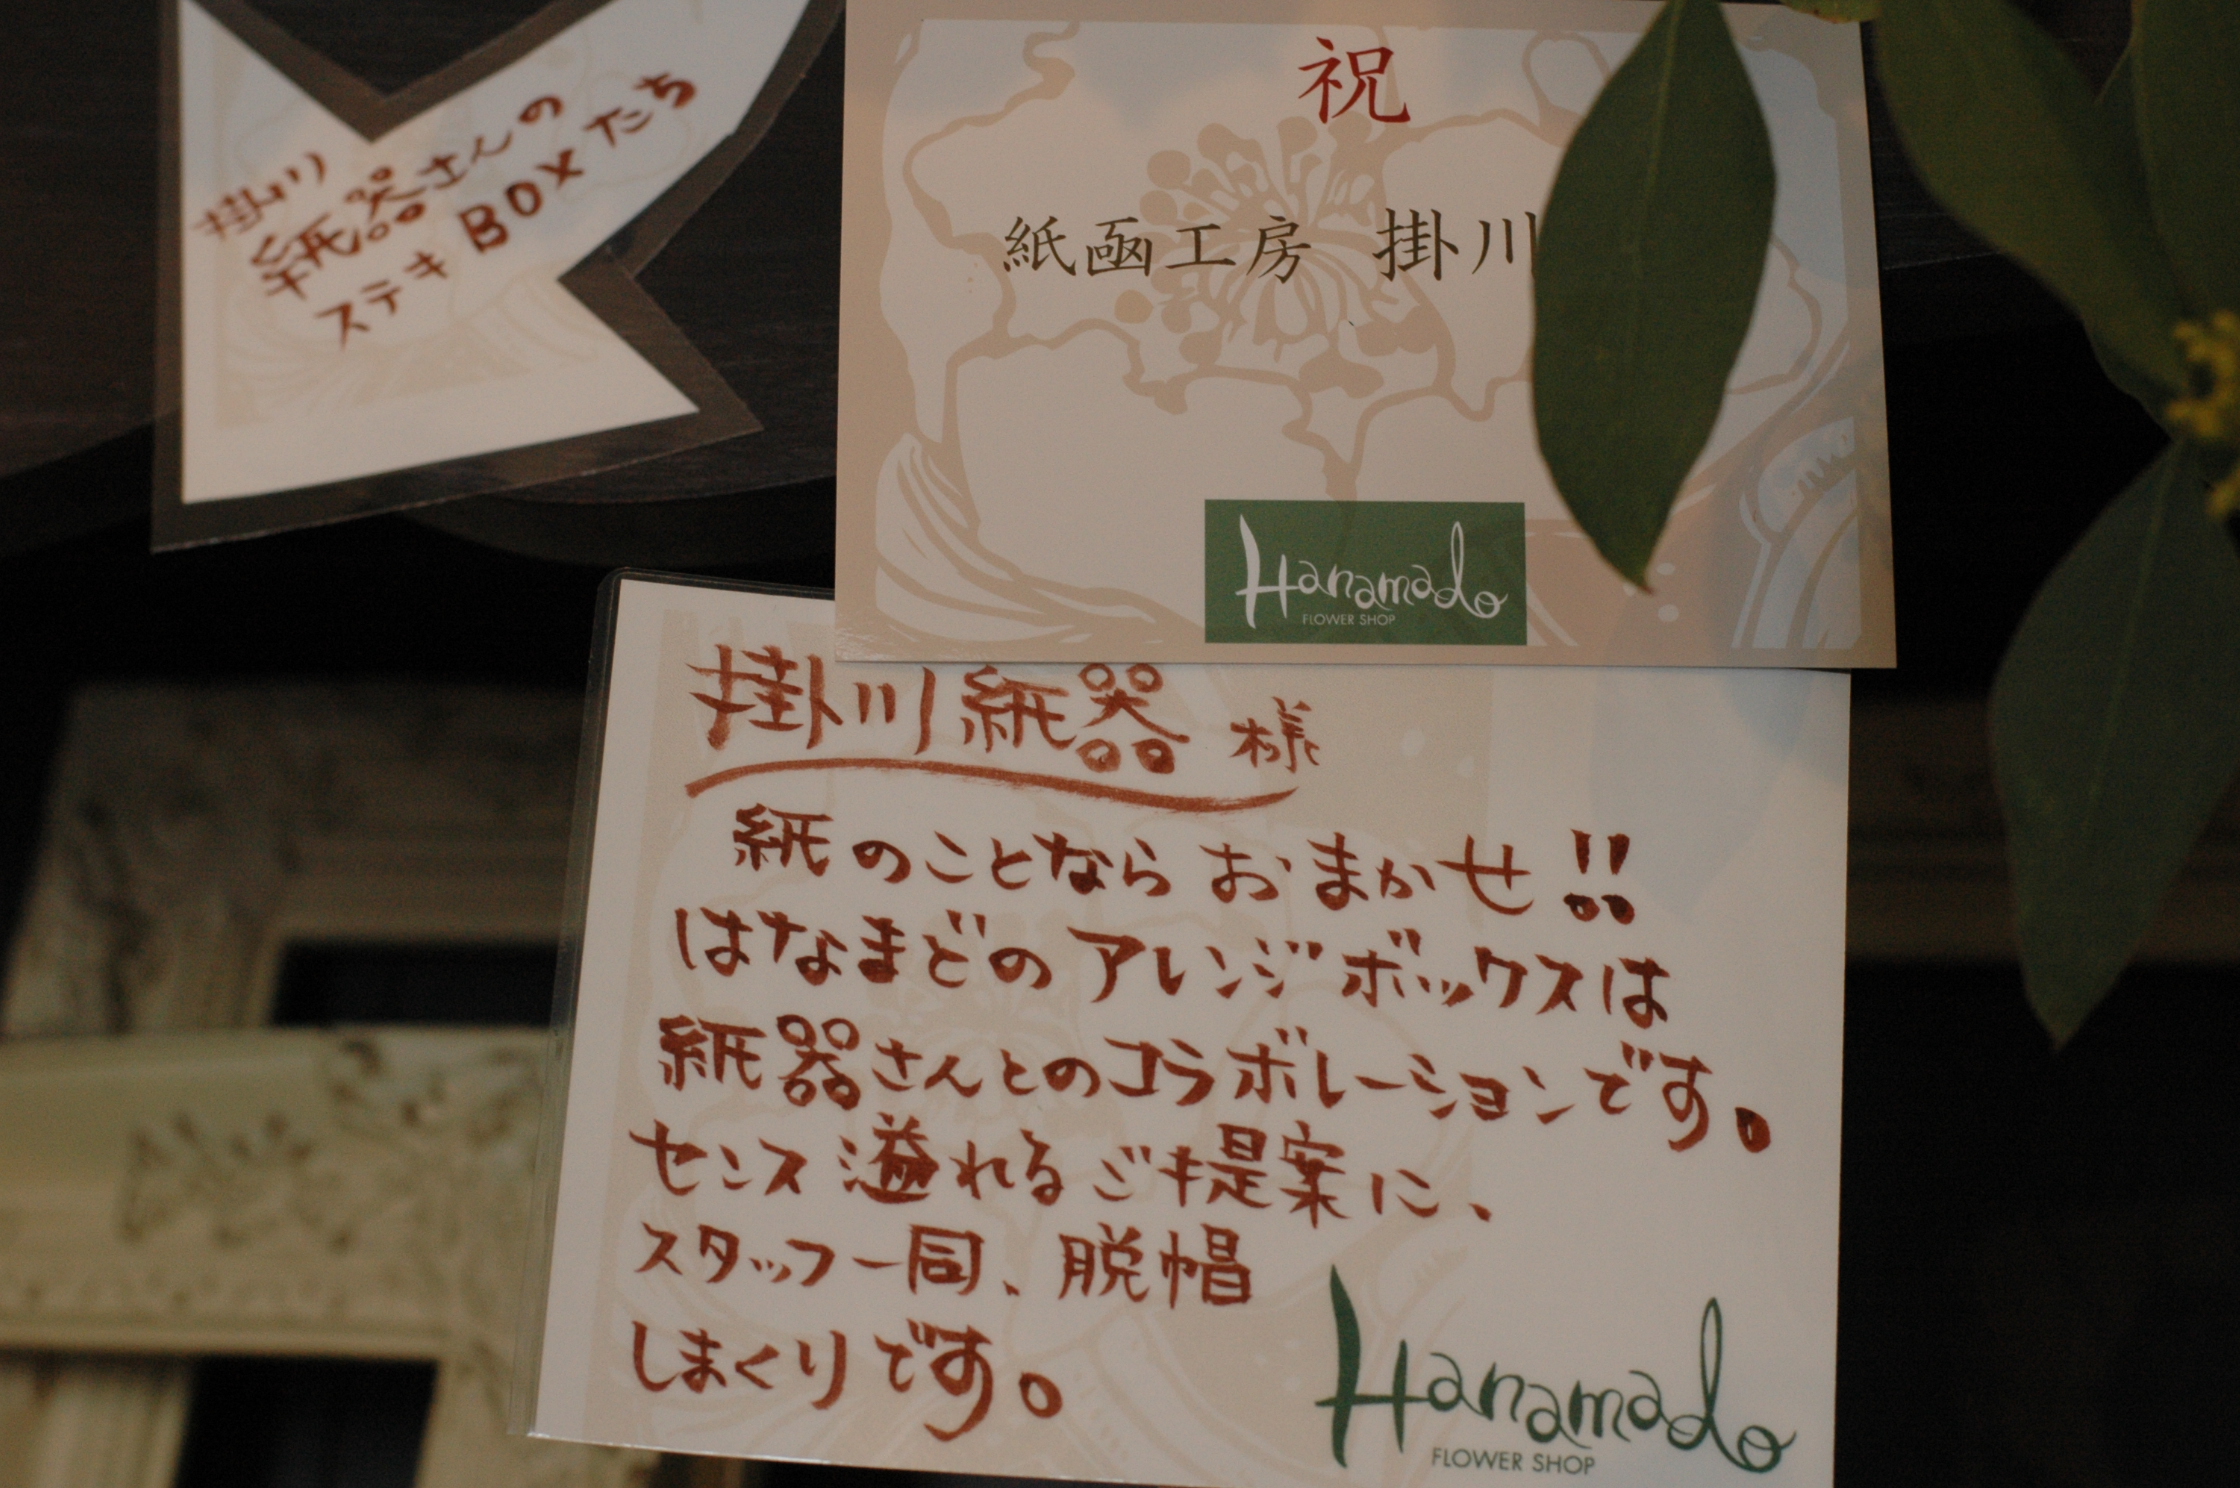 掛川
紙器さんの
ステキBOXたち
祝
紙凾工房 掛川
Hanamado
FLOWER SHOP
掛川紙器 様
紙のことならおまかせ!!
はなまどのアレンジボックスは
紙器さんとのコラボレーションです。
センス溢れるご提案に、
スタッフ一同、脱帽
しまくりです。
Hanamado
FLOWER SHOP